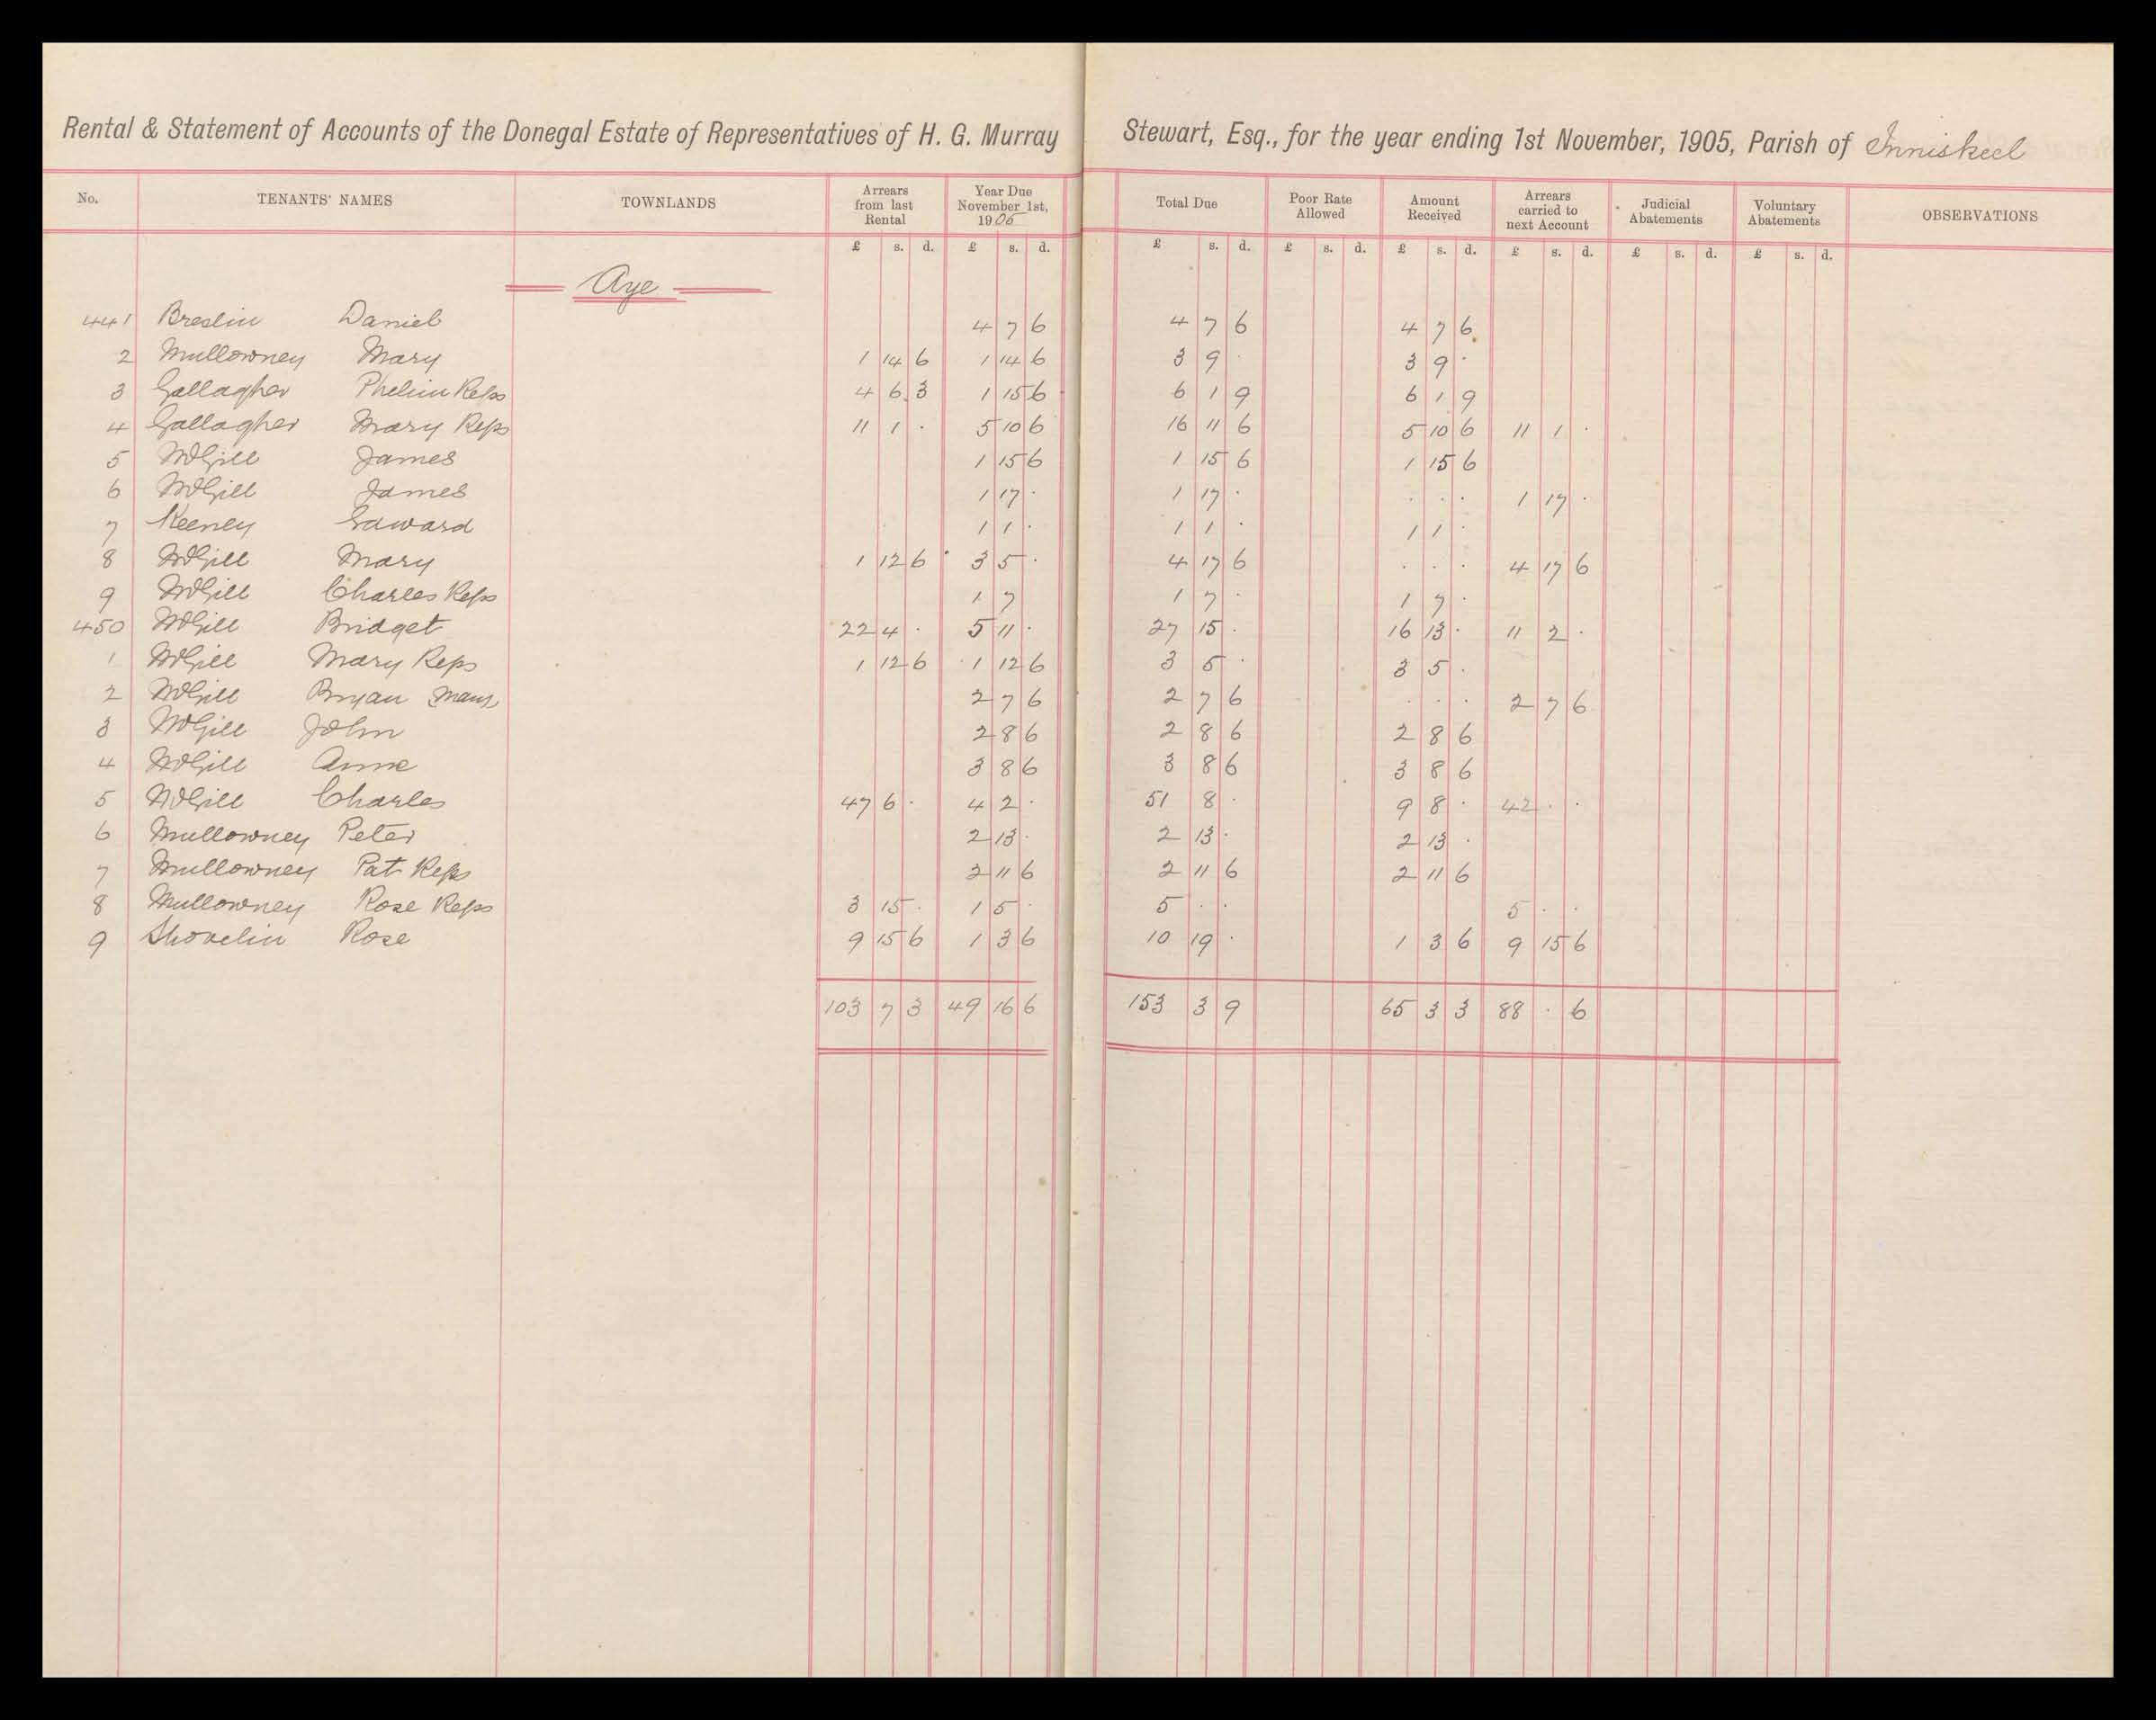 Rental & Statement of Accounts of the Donegal Estate of Representatives of H. G. Murray Stewart, Esq., for the year ending 1st November, 1905, Parish of Inniskeel
No. TENANTS' NAMES TOWNLANDS Arrears from last Rental Year Due November 1st, 1905 Total Due Poor Rate Allowed Amount Received Arrears carried to next Account Judicial Abatements Voluntary Abatements OBSERVATIONS
£ s. d. £ s. d. £ s. d. £ s. d. £ s. d. £ s. d. £ s. d. £ s. d.
Aye
441 Breslin Daniel 4 7 6 4 7 6 4 7 6
2 Mullowney Mary 1 14 6 1 14 6 3 9 · 3 9 ·
3 Gallagher Phelim Reps 4 6 3 1 15 6 6 1 9 6 1 9
4 Gallagher Mary Reps 11 1 · 5 10 6 16 11 6 5 10 6 11 1 ·
5 McGill James 1 15 6 1 15 6 1 15 6
6 McGill James 1 17 · 1 17 · · · · 1 17 ·
7 Keeney Edward 1 1 · 1 1 · 1 1 ·
8 McGill Mary 1 12 6 3 5 · 4 17 6 · · · 4 17 6
9 McGill Charles Reps 1 7 1 7 · 1 7 ·
450 McGill Bridget 22 4 · 5 11 · 27 15 · 16 13 · 11 2 ·
1 McGill Mary Reps 1 12 6 1 12 6 3 5 · 3 5 ·
2 McGill Bryan 2 7 6 2 7 6 · · · 2 7 6
3 McGill John 2 8 6 2 8 6 2 8 6
4 McGill Anne 3 8 6 3 8 6 3 8 6
5 McGill Charles 47 6 · 4 2 · 51 8 · 9 8 · 42 · ·
6 Mullowney Peter 2 13 · 2 13 · 2 13 ·
7 Mullowney Pat Reps 2 11 6 2 11 6 2 11 6
8 Mullowney Rose Reps 3 15 · 1 5 · 5 · · 5 · ·
9 Shovelin Rose 9 15 6 1 3 6 10 19 · 1 3 6 9 15 6
103 7 3 49 16 6 153 3 9 65 3 3 88 · 6